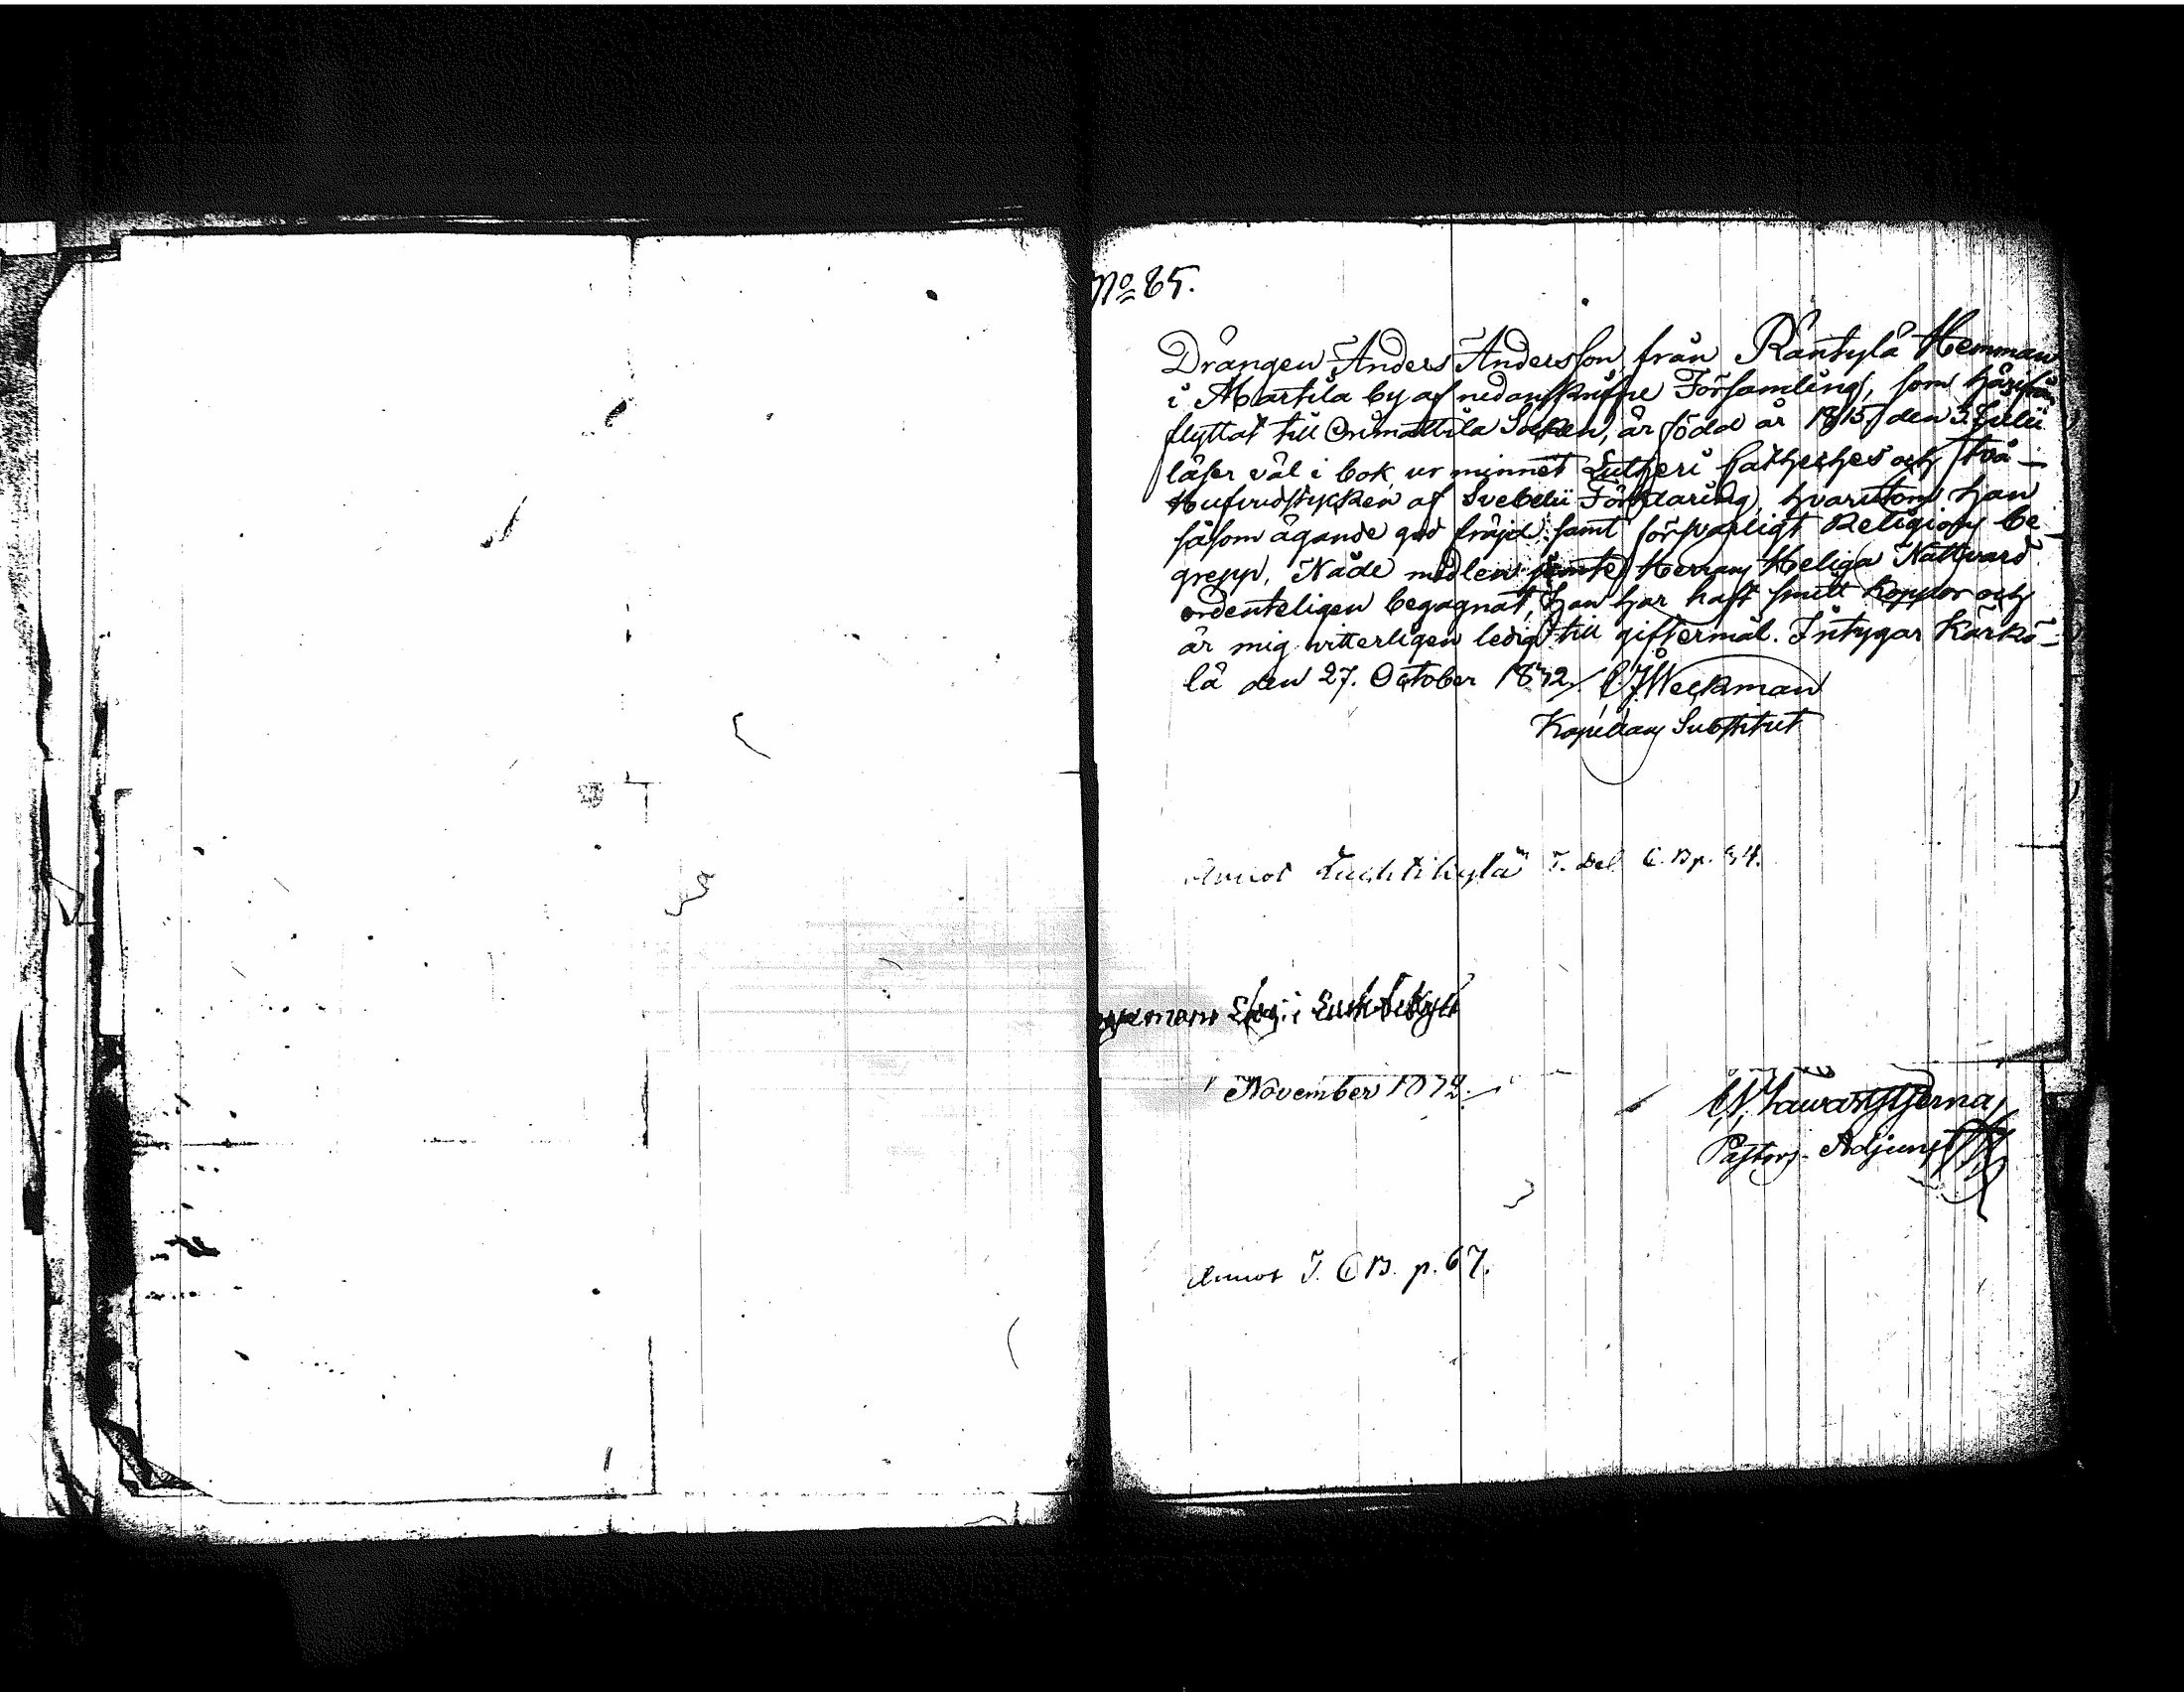 No 85.
Drängen Anders Andersson från Räntylä Hemman
i Martila by af nedanskrifne Församling, som härifrån
flyttat till Orimattila Socken, är född år 1815 den 3. Julii
läser väl i bok, ur minnet Lutheri Catheches och två
Hufvudstycken af Svebelii Förklaring, hvarutom han
såsom ägande god fräjd samt försvarligt Religions be
grepp, Nåde medlen jemte Herrans Heliga Nattvard
ordenteligen begagnat, Han har haft smitt Koppor och
är mig vitterligen ledig till giftermål. Intygar Kärkö-
lä den 27. October 1842. C J Weckman
Kapellans Substitut
Annot Luchtikylä I. Del C. B p. 34.
i Luchtikylä
November 1842.
Pastors Adjunct
Annot I. C B. p. 67.